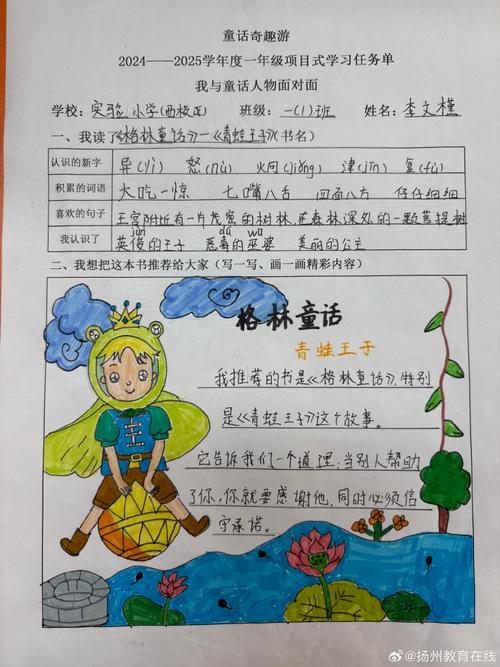 童话奇趣游
2024——2025学年度一年级项目式学习任务单
我与童话人物面对面
学校：实验小学(西校区) 班级：一(1)班 姓名：李文槿
一、我读了《格林童话》—《青蛙王子》(书名)
认识的新字 异(yì) 怒(nù) 炯(jiǒng) 津(jīn) 复(fù)
积累的词语 大吃一惊 七嘴八舌 四面八方 仔仔细细
喜欢的句子 王宫附近有一片茂密的树林,在森林深处的一颗菩提树
jùn dú wū
我认识了 英俊的王子 恶毒的巫婆 美丽的公主
二、我想把这本书推荐给大家（写一写、画一画精彩内容）
格林童话
青蛙王子
我推荐的书是《格林童话》,特别
是《青蛙王子》这个故事。
它告诉我们一个道理:当别人帮助
了你,你就要感谢他,同时必须信
守承诺。
王
@扬州教育在线